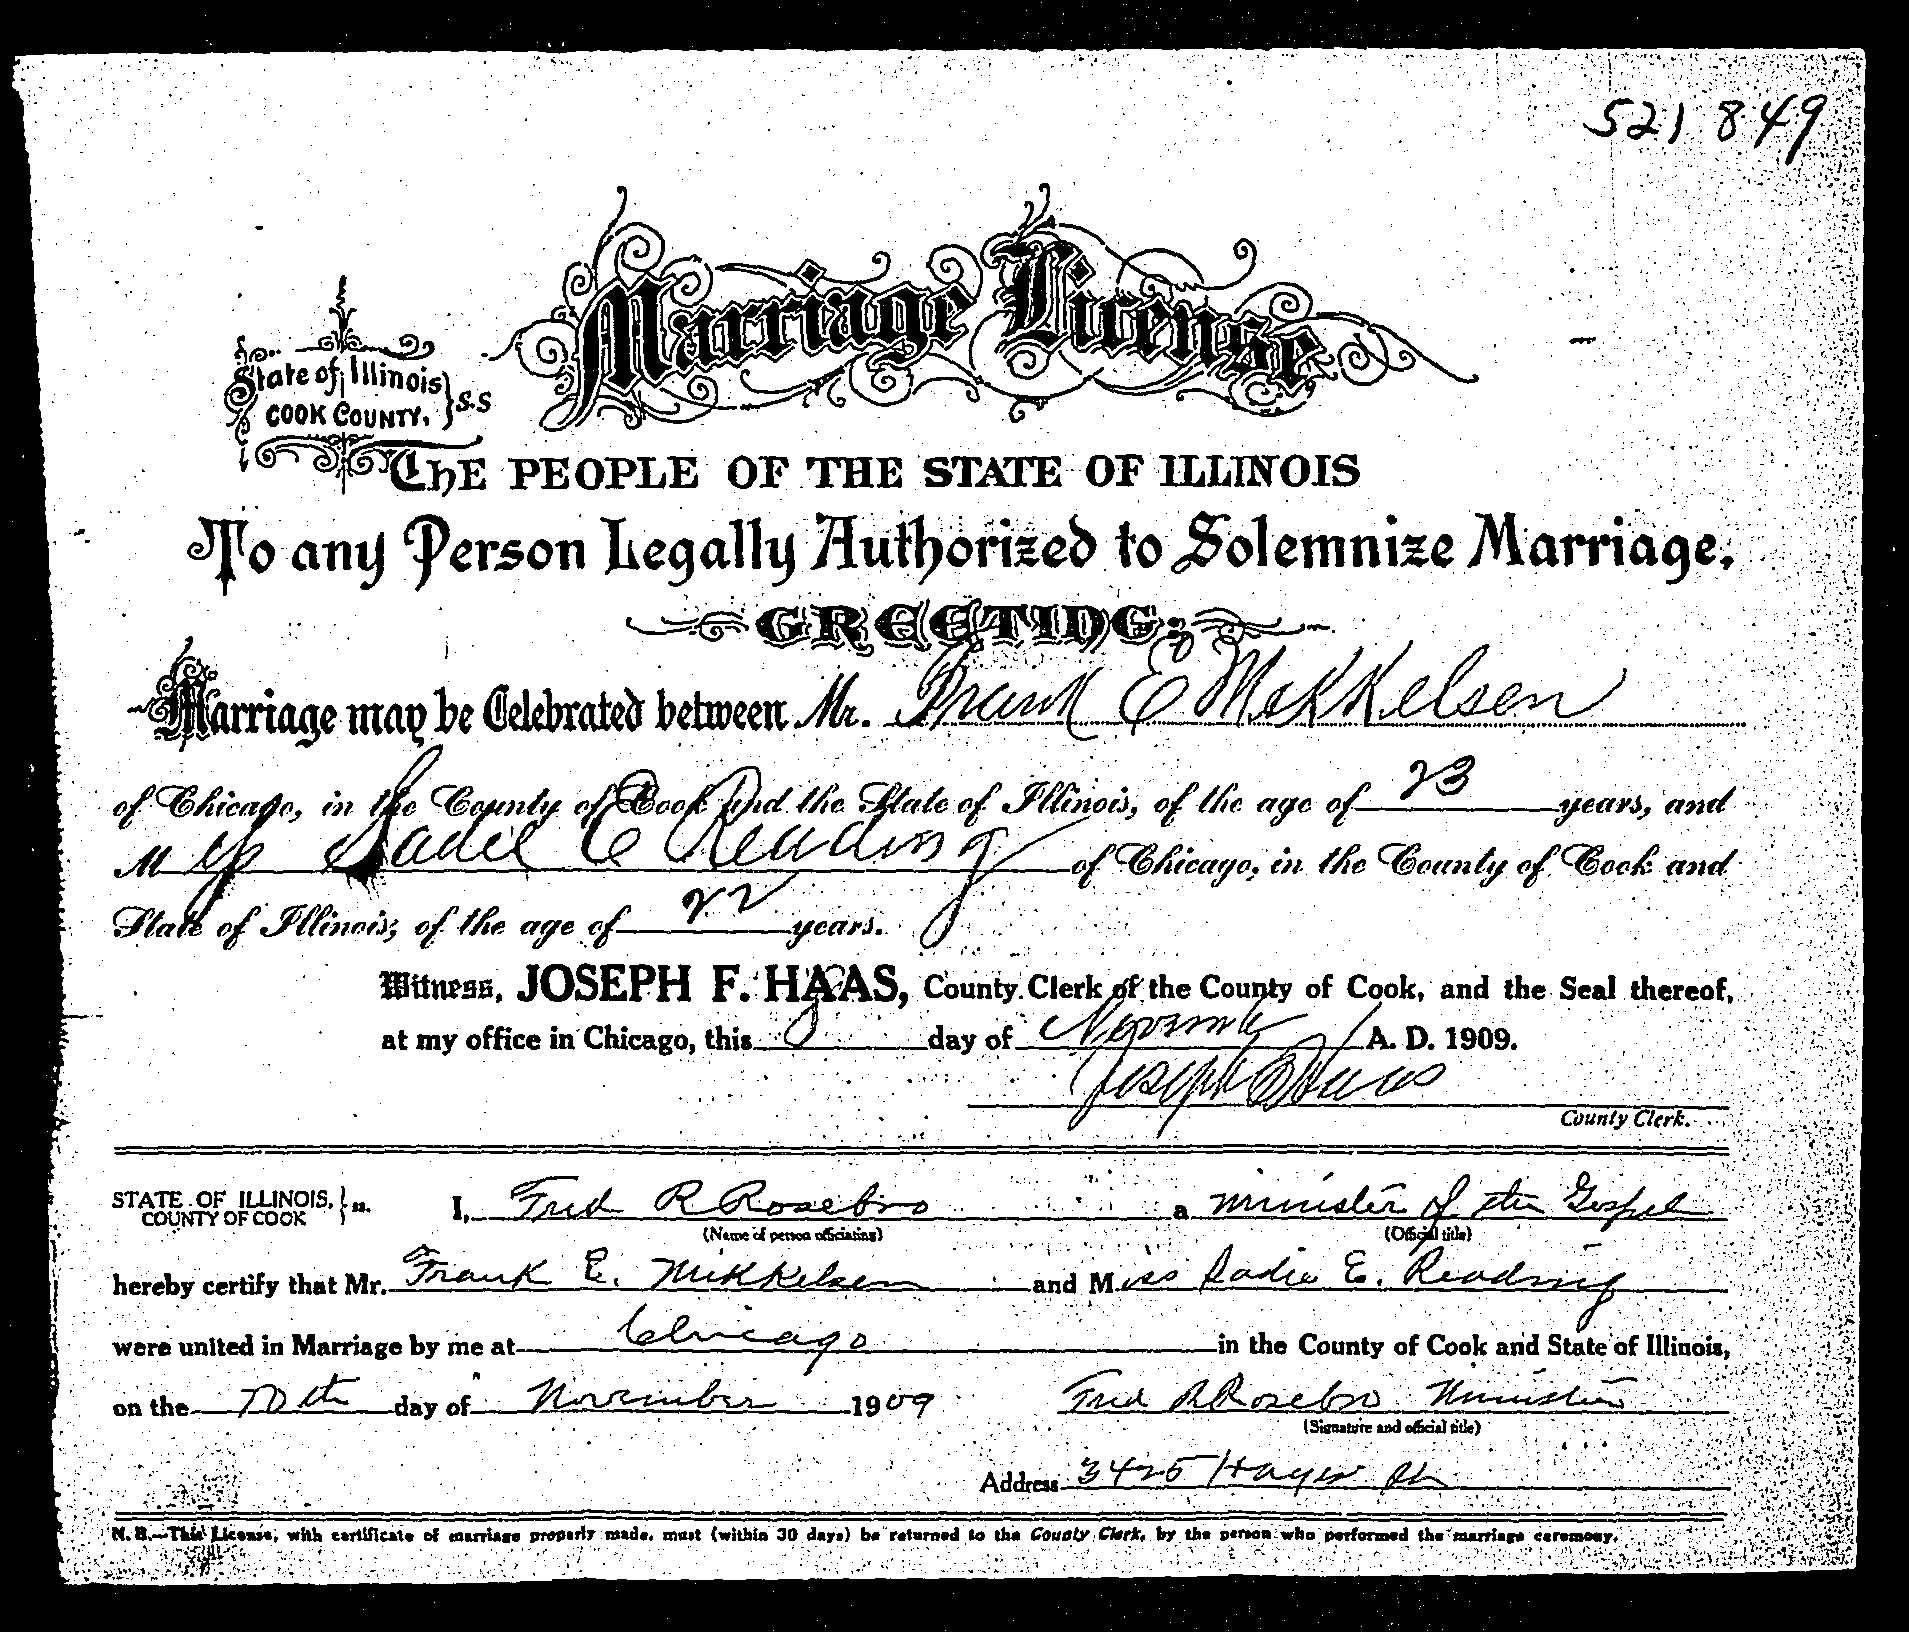 521849
Marriage License
State of Illinois
COOK COUNTY. } S.S
The PEOPLE OF THE STATE OF ILLINOIS
To any Person Legally Authorized to Solemnize Marriage,
GREETING:
Marriage may be Celebrated between Mr. Frank E Mikkelsen
of Chicago, in the County of Cook and the State of Illinois, of the age of 23 years, and
M Sadie E Reading of Chicago, in the County of Cook and
State of Illinois, of the age of 22 years.
Witness, JOSEPH F. HAAS, County Clerk of the County of Cook, and the Seal thereof,
at my office in Chicago, this 8 day of November A. D. 1909.
Joseph F Haas
County Clerk.
STATE OF ILLINOIS, } ss.
COUNTY OF COOK
I, Fred R Rosebro a minister of the Gospel
(Name of person officiating) (Official title)
hereby certify that Mr. Frank E. Mikkelsen and Miss Sadie E. Reading
were united in Marriage by me at Chicago in the County of Cook and State of Illinois,
on the 10th day of November 1909 Fred R Rosebro Minister
(Signature and official title)
Address 3425
N. B.—This License, with certificate of marriage properly made, must (within 30 days) be returned to the County Clerk, by the person who performed the marriage ceremony.